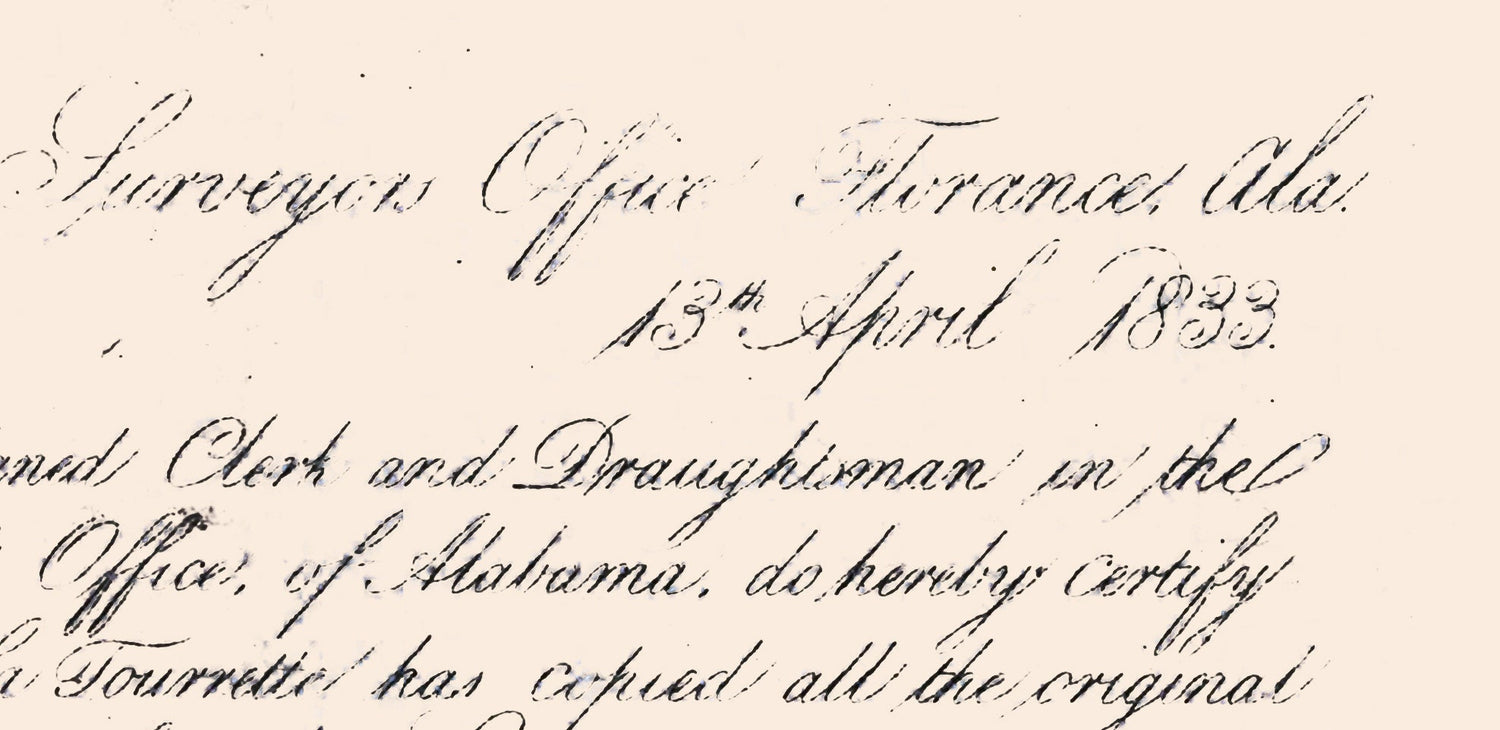 Surveyors Office Florance, Ala.
13th April 1833.
aned Clerk and Draughtsman in the
Office, of Alabama, do hereby certify
a Tourrette has copied all the original